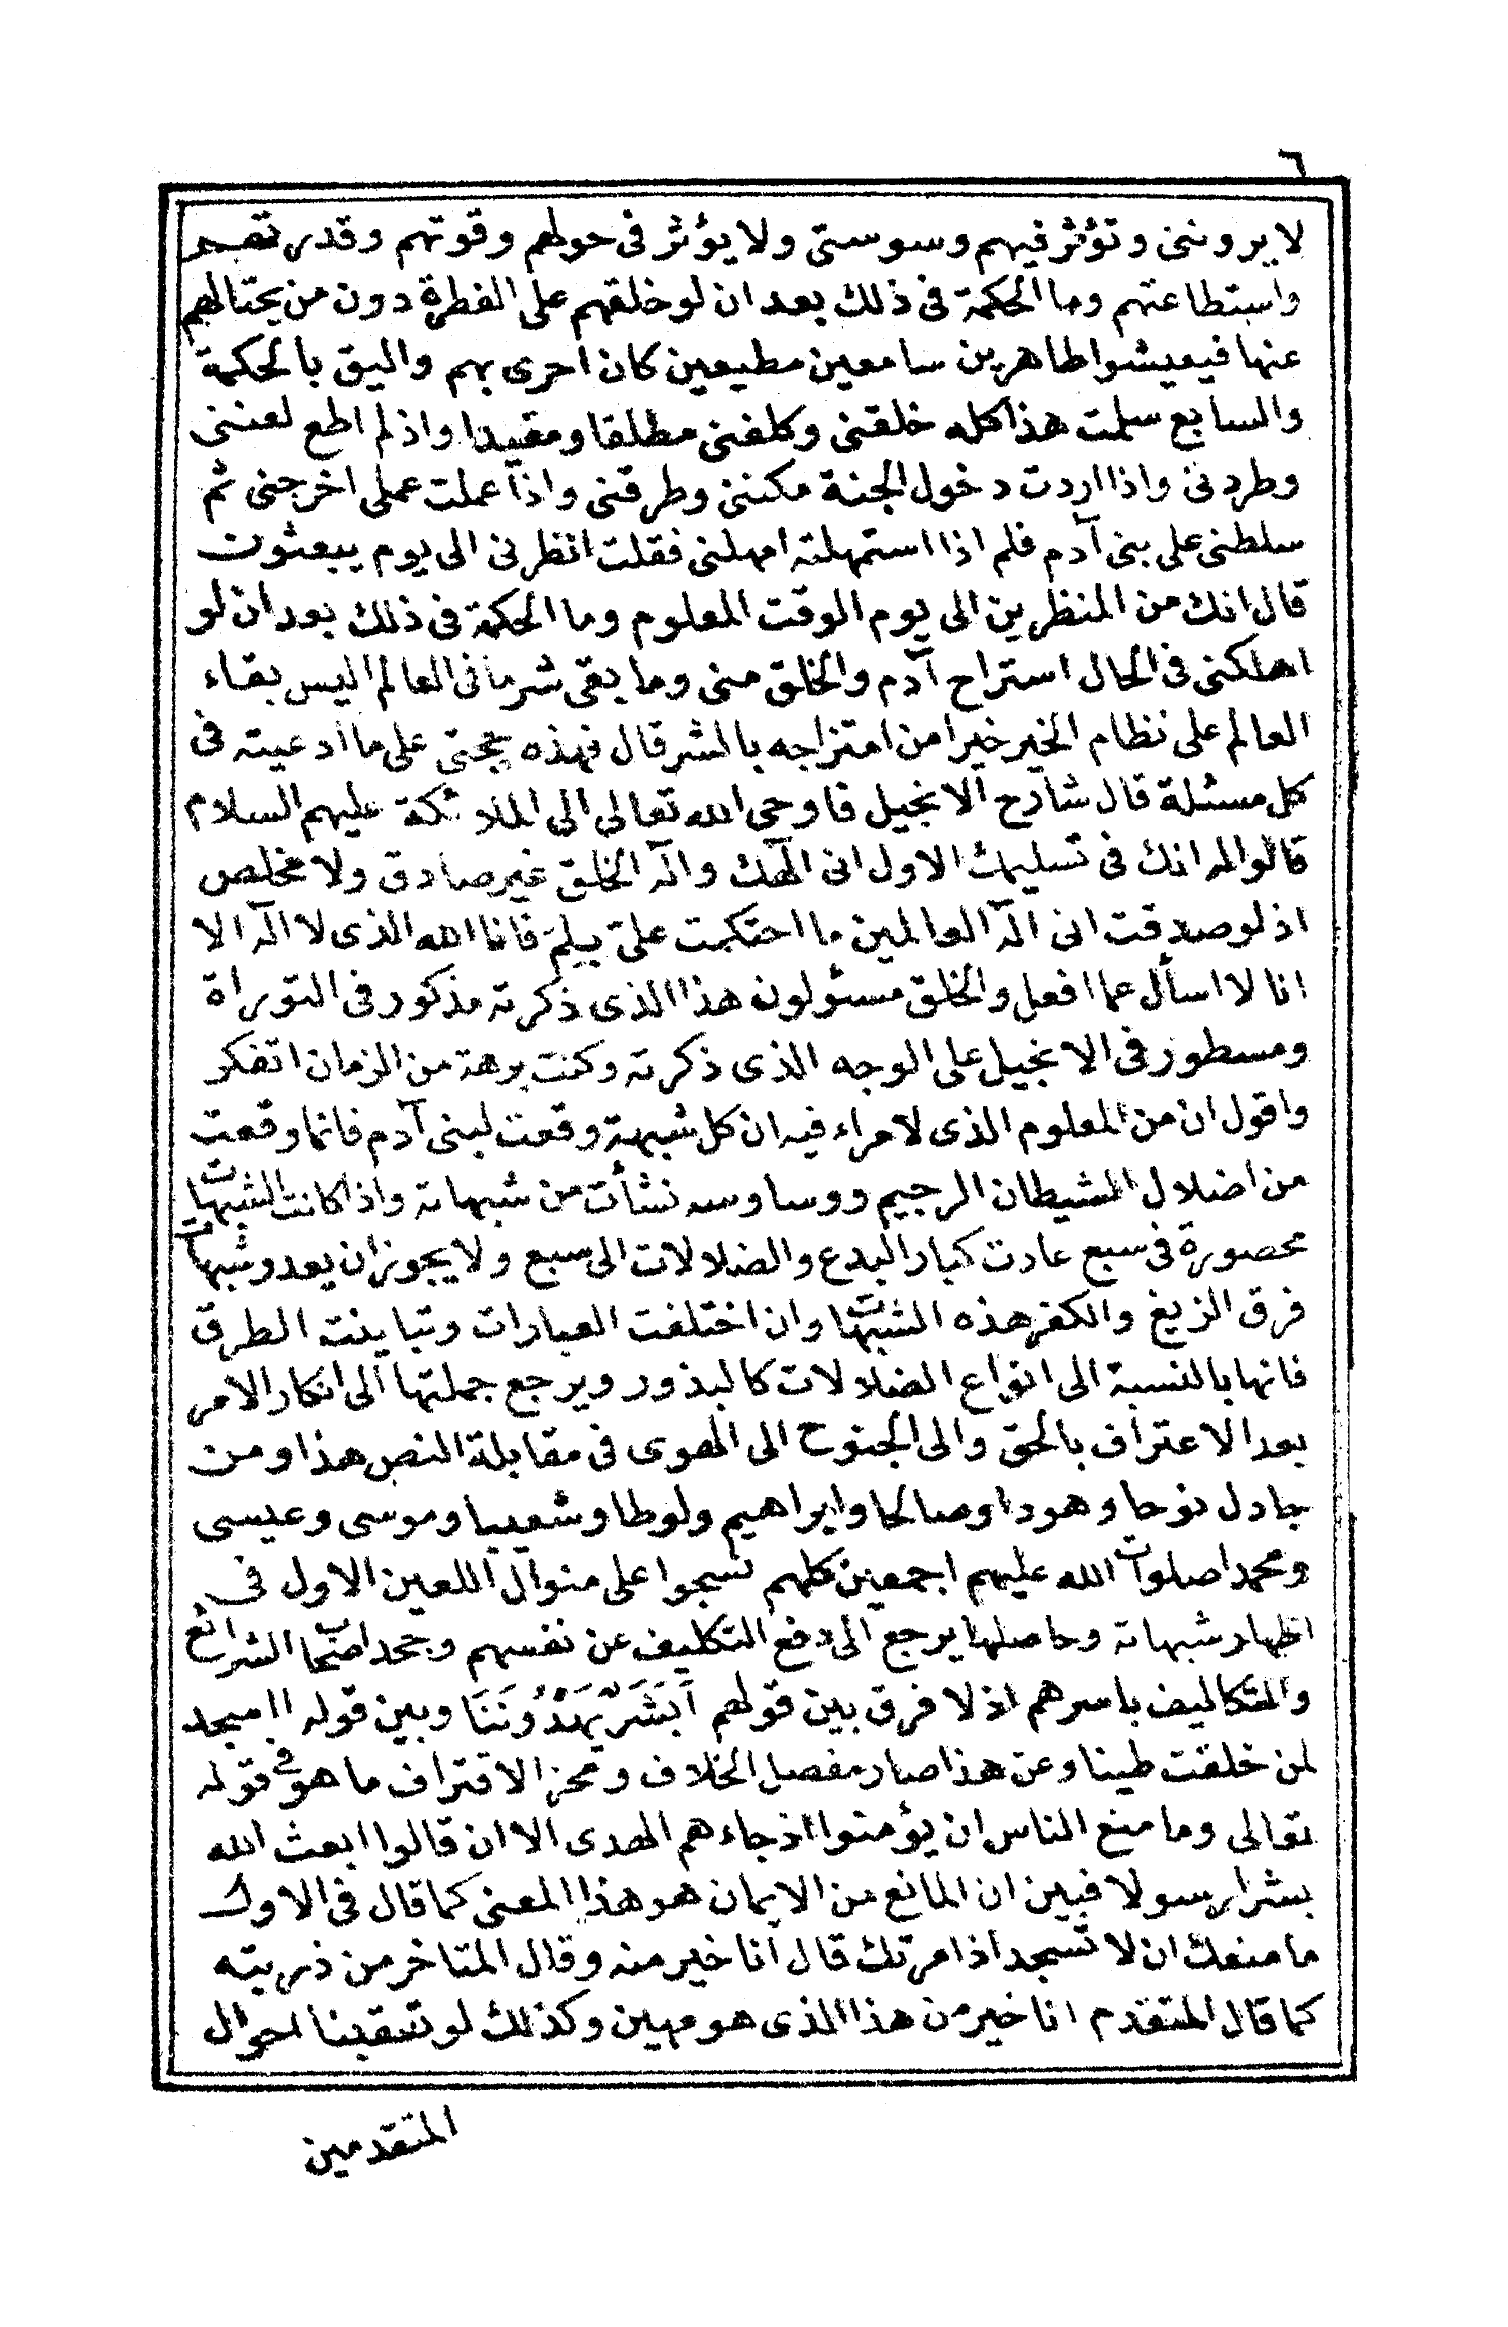 ٦
لا يرونني وتؤثر فيهم وسوستي ولا يؤثر في حولهم وقوتهم وقدرتهم
واستطاعتهم وما الحكمة في ذلك بعد ان لو خلقهم على الفطرة دون من يحتالهم
عنها فيعيشوا طاهرين سامعين مطيعين كان احرى بهم واليق بالحكمة
والسابع سلمت هذا كله خلقني وكلفني مطلقا ومقيدا واذ لم اطع لعنني
وطردني واذا اردت دخول الجنة مكنني وطرقني واذا عملت عملي اخرجني ثم
سلطني على بني آدم فلم اذا استمهلته امهلني فقلت انظرني الى يوم يبعثون
قال انك من المنظرين الى يوم الوقت المعلوم وما الحكمة في ذلك بعد ان لو
اهلكني في الحال استراح آدم والخلق مني وما بقي شر ما في العالم اليس بقاء
العالم على نظام الخير خيرا من امتزاجه بالشر قال فهذه حجتي على ما ادعيته في
كل مسئلة قال شارح الانجيل فاوحى الله تعالى الى الملائكة عليهم السلام
قالوا له انك في تسليمك الاول اني الهك واله الخلق غير صادق ولا مخلص
اذ لو صدقت اني اله العالمين ما احتكمت علي بلم فانا الله الذي لا اله الا
انا لا اسأل عما افعل والخلق مسئولون هذا الذي ذكرته مذكور في التوراة
ومسطور في الانجيل على الوجه الذي ذكرته وكنت برهة من الزمان اتفكر
واقول ان من المعلوم الذي لا مراء فيه ان كل شبهة وقعت لبني آدم فانما وقعت
من اضلال الشيطان الرجيم ووساوسه نشأت من شبهاته واذا كانت الشبهات
محصورة في سبع عادت كبار البدع والضلالات الى سبع ولا يجوز ان يعدو شبهات
فرق الزيغ والكفر هذه الشبهات وان اختلفت العبارات وتباينت الطرق
فانها بالنسبة الى انواع الضلالات كالبذور ويرجع جملتها الى انكار الامر
بعد الاعتراف بالحق والى الجنوح الى الهوى في مقابلة النص هذا ومن
جادل نوحا وهودا وصالحا وابراهيم ولوطا وشعيبا وموسى وعيسى
ومحمدا صلوات الله عليهم اجمعين كلهم نسجوا على منوال اللعين الاول في
اظهار شبهاته وحاصلها يرجع الى دفع التكليف عن نفسهم وجحد اصحاب الشرائع
والتكاليف باسرهم اذ لا فرق بين قولهم اَبَشَرٌ يَهْدُونَنَا وبين قوله أاسجد
لمن خلقت طينا وعن هذا صار مفصل الخلاف ومحز الافتراق ما هو في قوله
تعالى وما منع الناس ان يؤمنوا اذ جاءهم الهدى الا ان قالوا ابعث الله
بشرا رسولا فبين ان المانع من الايمان هو هذا المعنى كما قال في الاول
ما منعك ان لا تسجد اذ امرتك قال انا خير منه وقال المتاخر من ذريته
كما قال المتقدم انا خير من هذا الذي هو مهين وكذلك لو تعقبنا احوال
المتقدمين